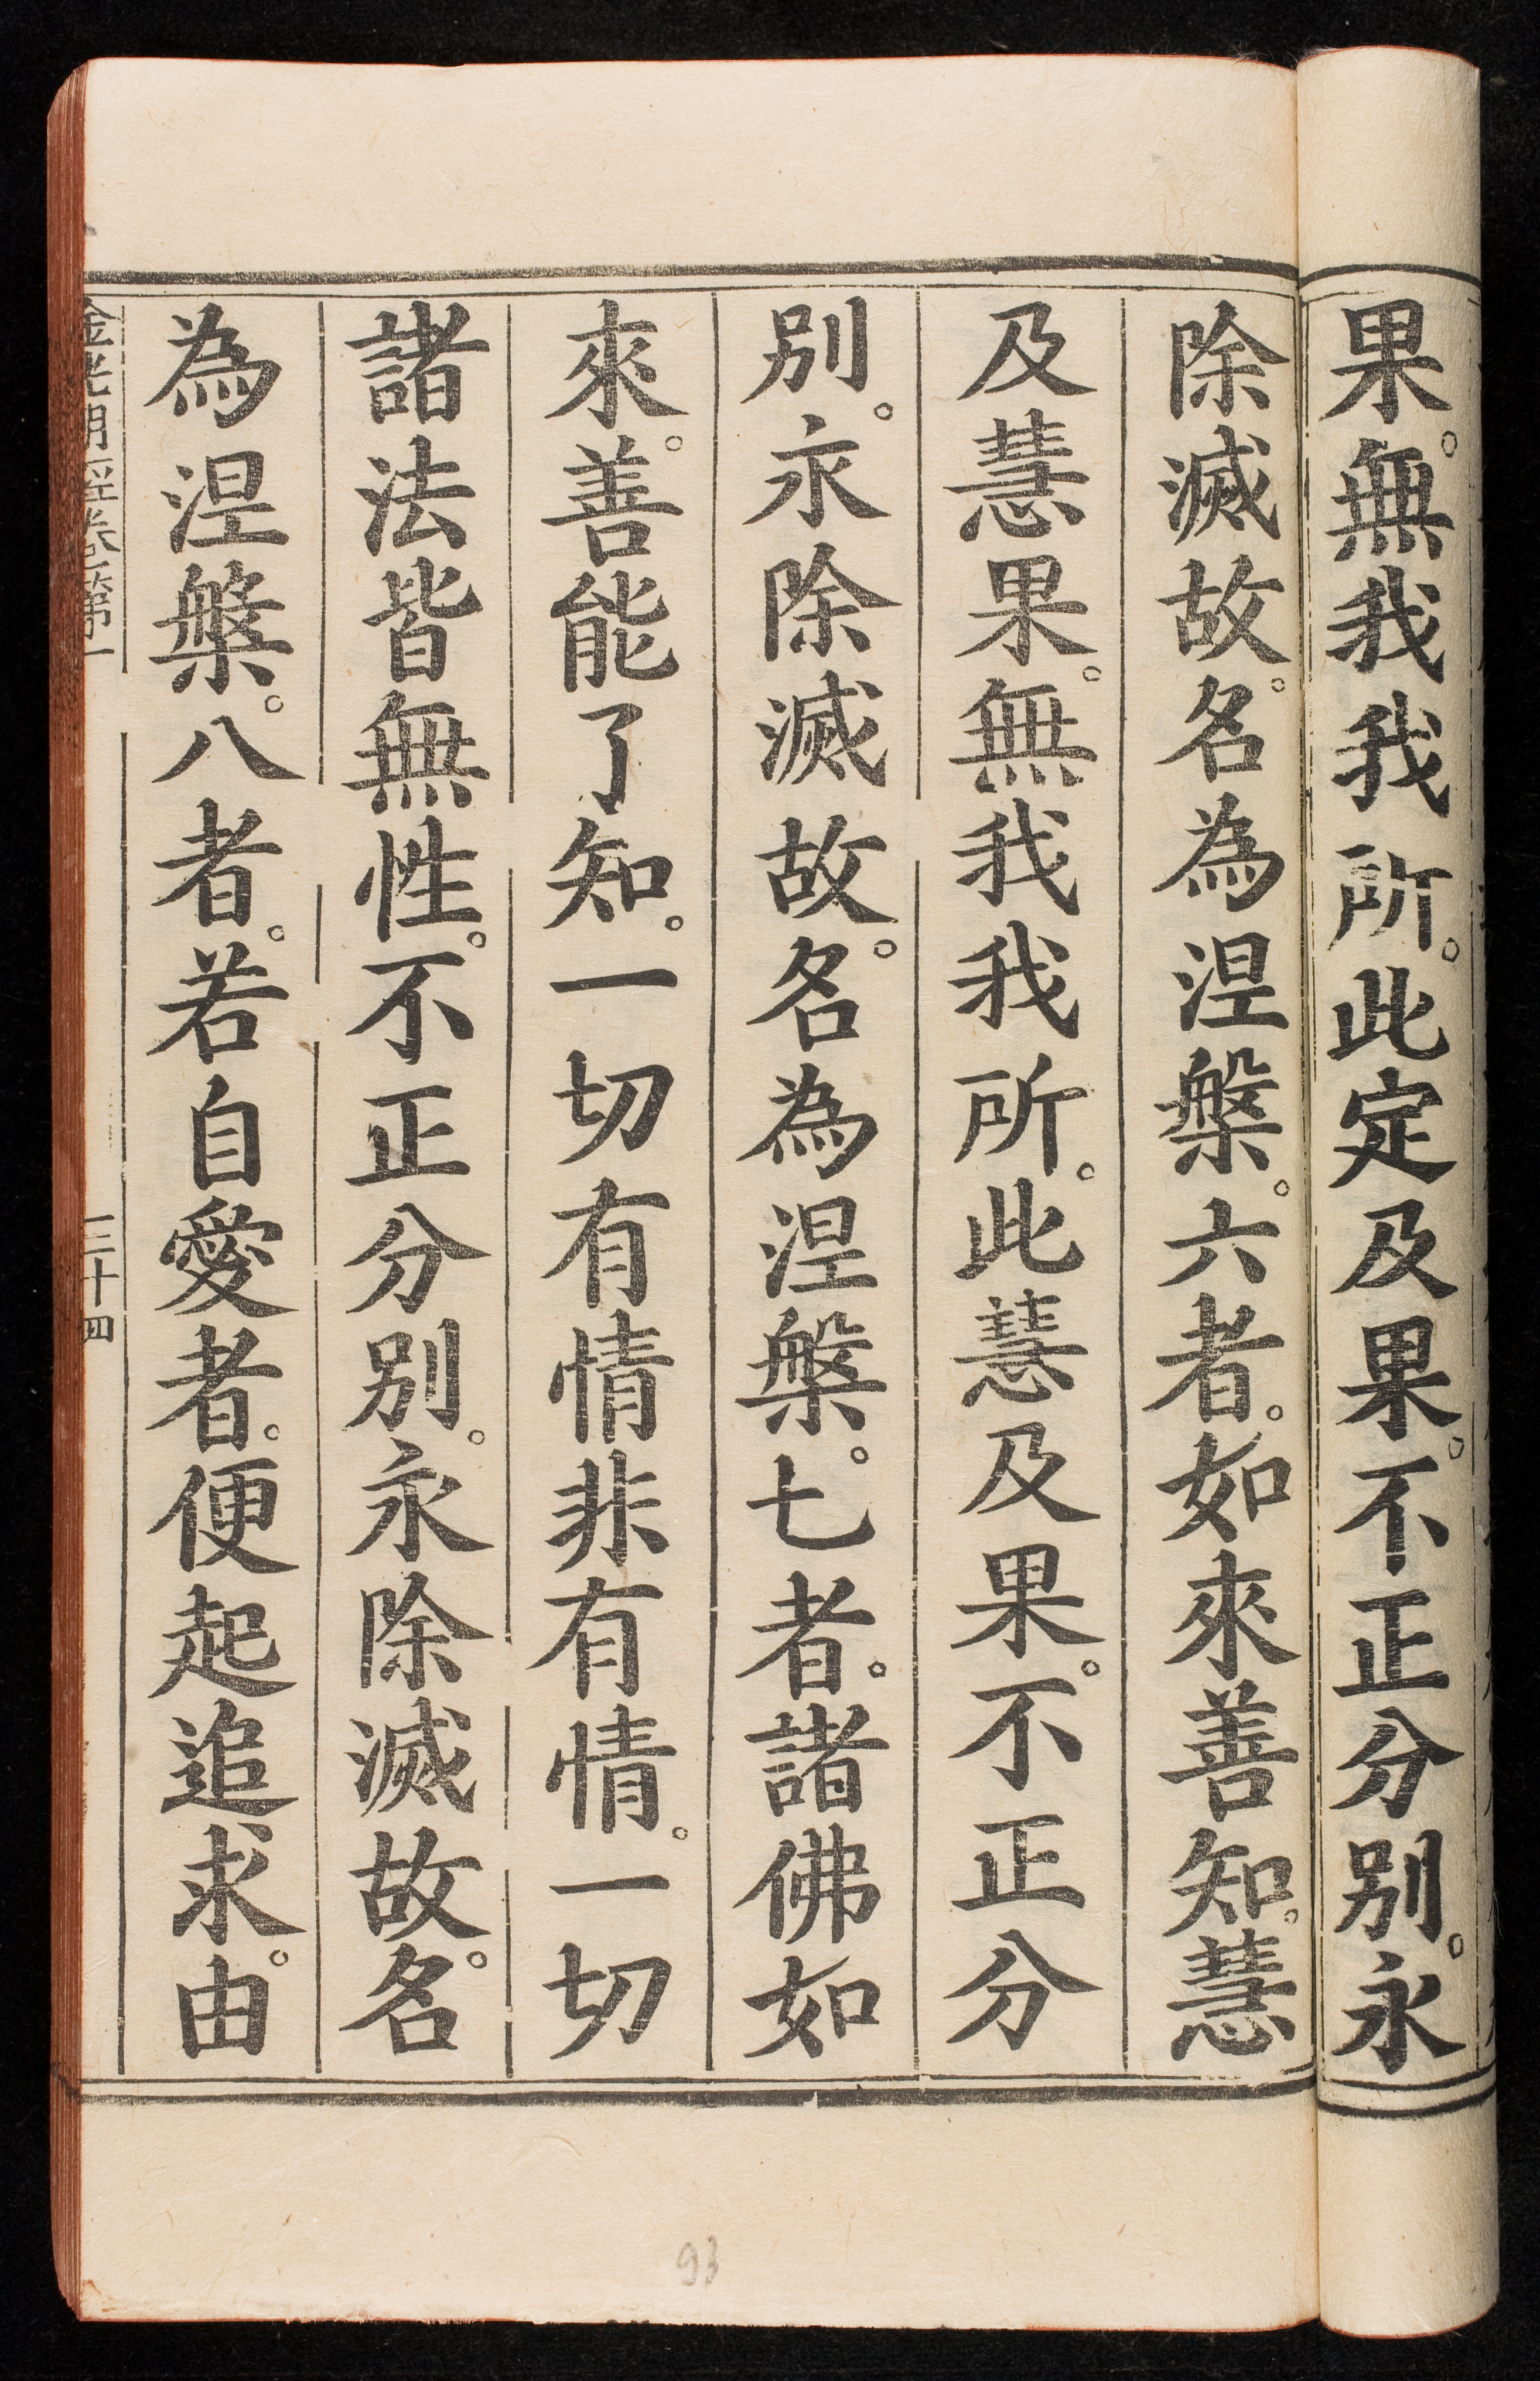 果。無我我所。此定及果。不正分別。永
除滅故。名為涅槃。六者。如來善知。慧
及慧果。無我我所。此慧及果。不正分
別。永除滅故。名為涅槃。七者。諸佛如
來。善能了知。一切有情非有情。一切
諸法皆無性。不正分別。永除滅故。名
為涅槃。八者。若自愛者。便起追求。由
金光明經卷第一
三十四
93